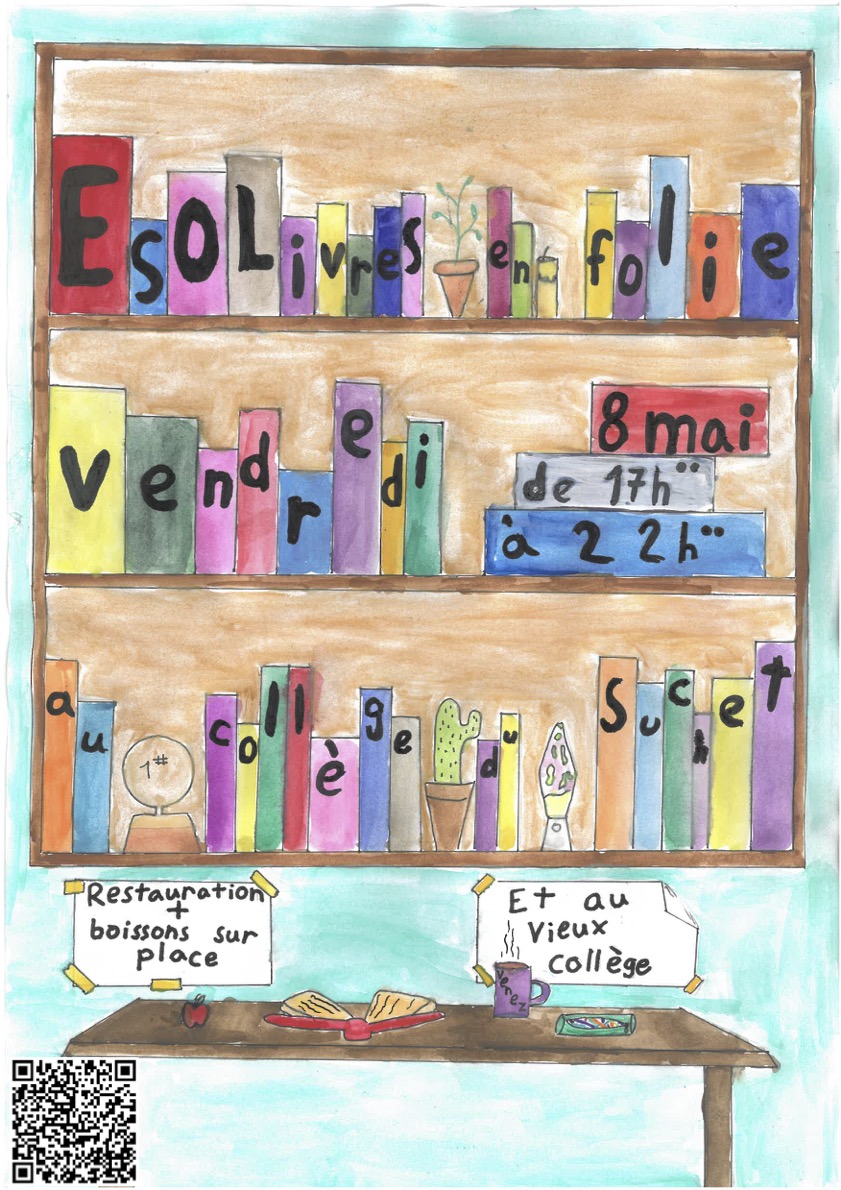 ESOLivres en folie
Vendredi
8 mai
de 17h¨
à 22h¨
au collège du Suchet
1#
Restauration
+
boissons sur
place
Et au
vieux
collège
venez